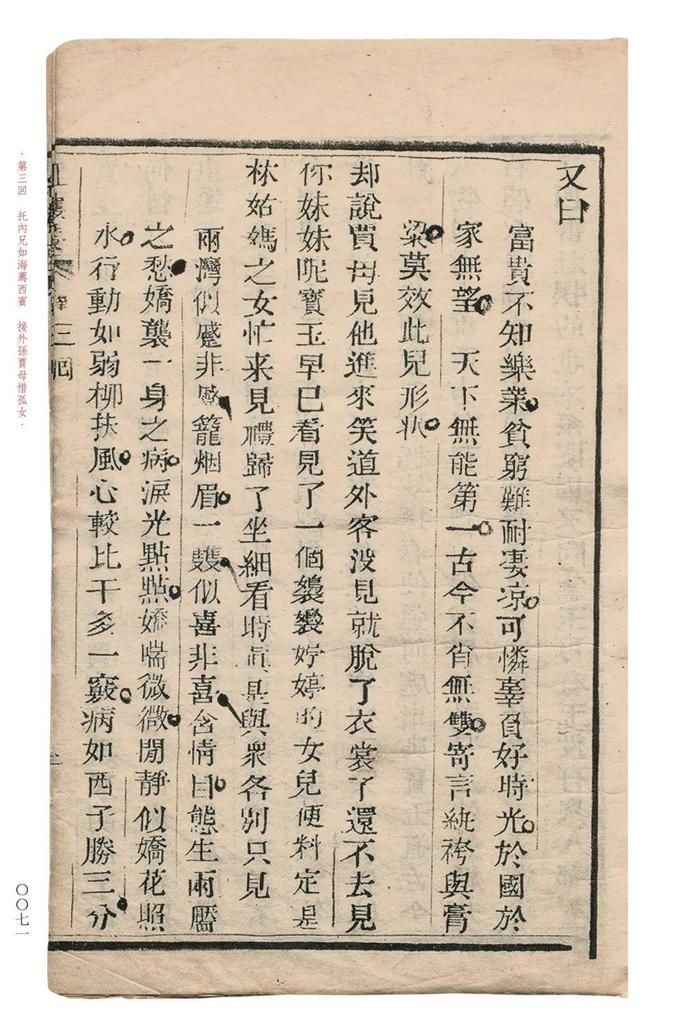 又曰
富貴不知樂業貧窮難耐凄凉可憐辜負好時光於國於
家無望　天下無能第一古今不肖無雙寄言紈袴與膏
粱莫效此兒形狀
却說賈母見他進來笑道外客没見就脫了衣裳了還不去見
你妹妹呢寶玉早已看見了一個裊裊婷婷的女兒便料定是
林姑媽之女忙来見禮歸了坐細看時真是與衆各別只見
兩灣似蹙非蹙籠烟眉一雙似喜非喜含情目態生兩靨
之愁嬌襲一身之病淚光點點嬌喘微微閒靜似嬌花照
水行動如弱柳扶風心較比干多一竅病如西子勝三分
三囘
·第三回　托內兄如海薦西賓　接外孫賈母惜孤女·
〇〇七一